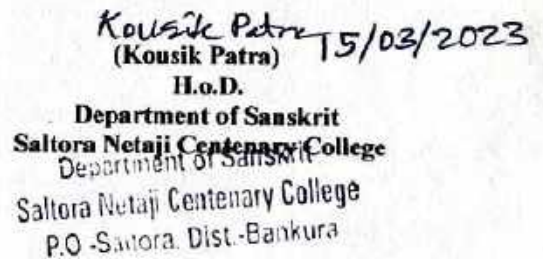 Kousik Patra 15/03/2023
(Kousik Patra)
H.o.D.
Department of Sanskrit
Saltora Netaji Centenary College
Department of Sanskrit
Saltora Netaji Centenary College
P.O -Saltora. Dist.-Bankura